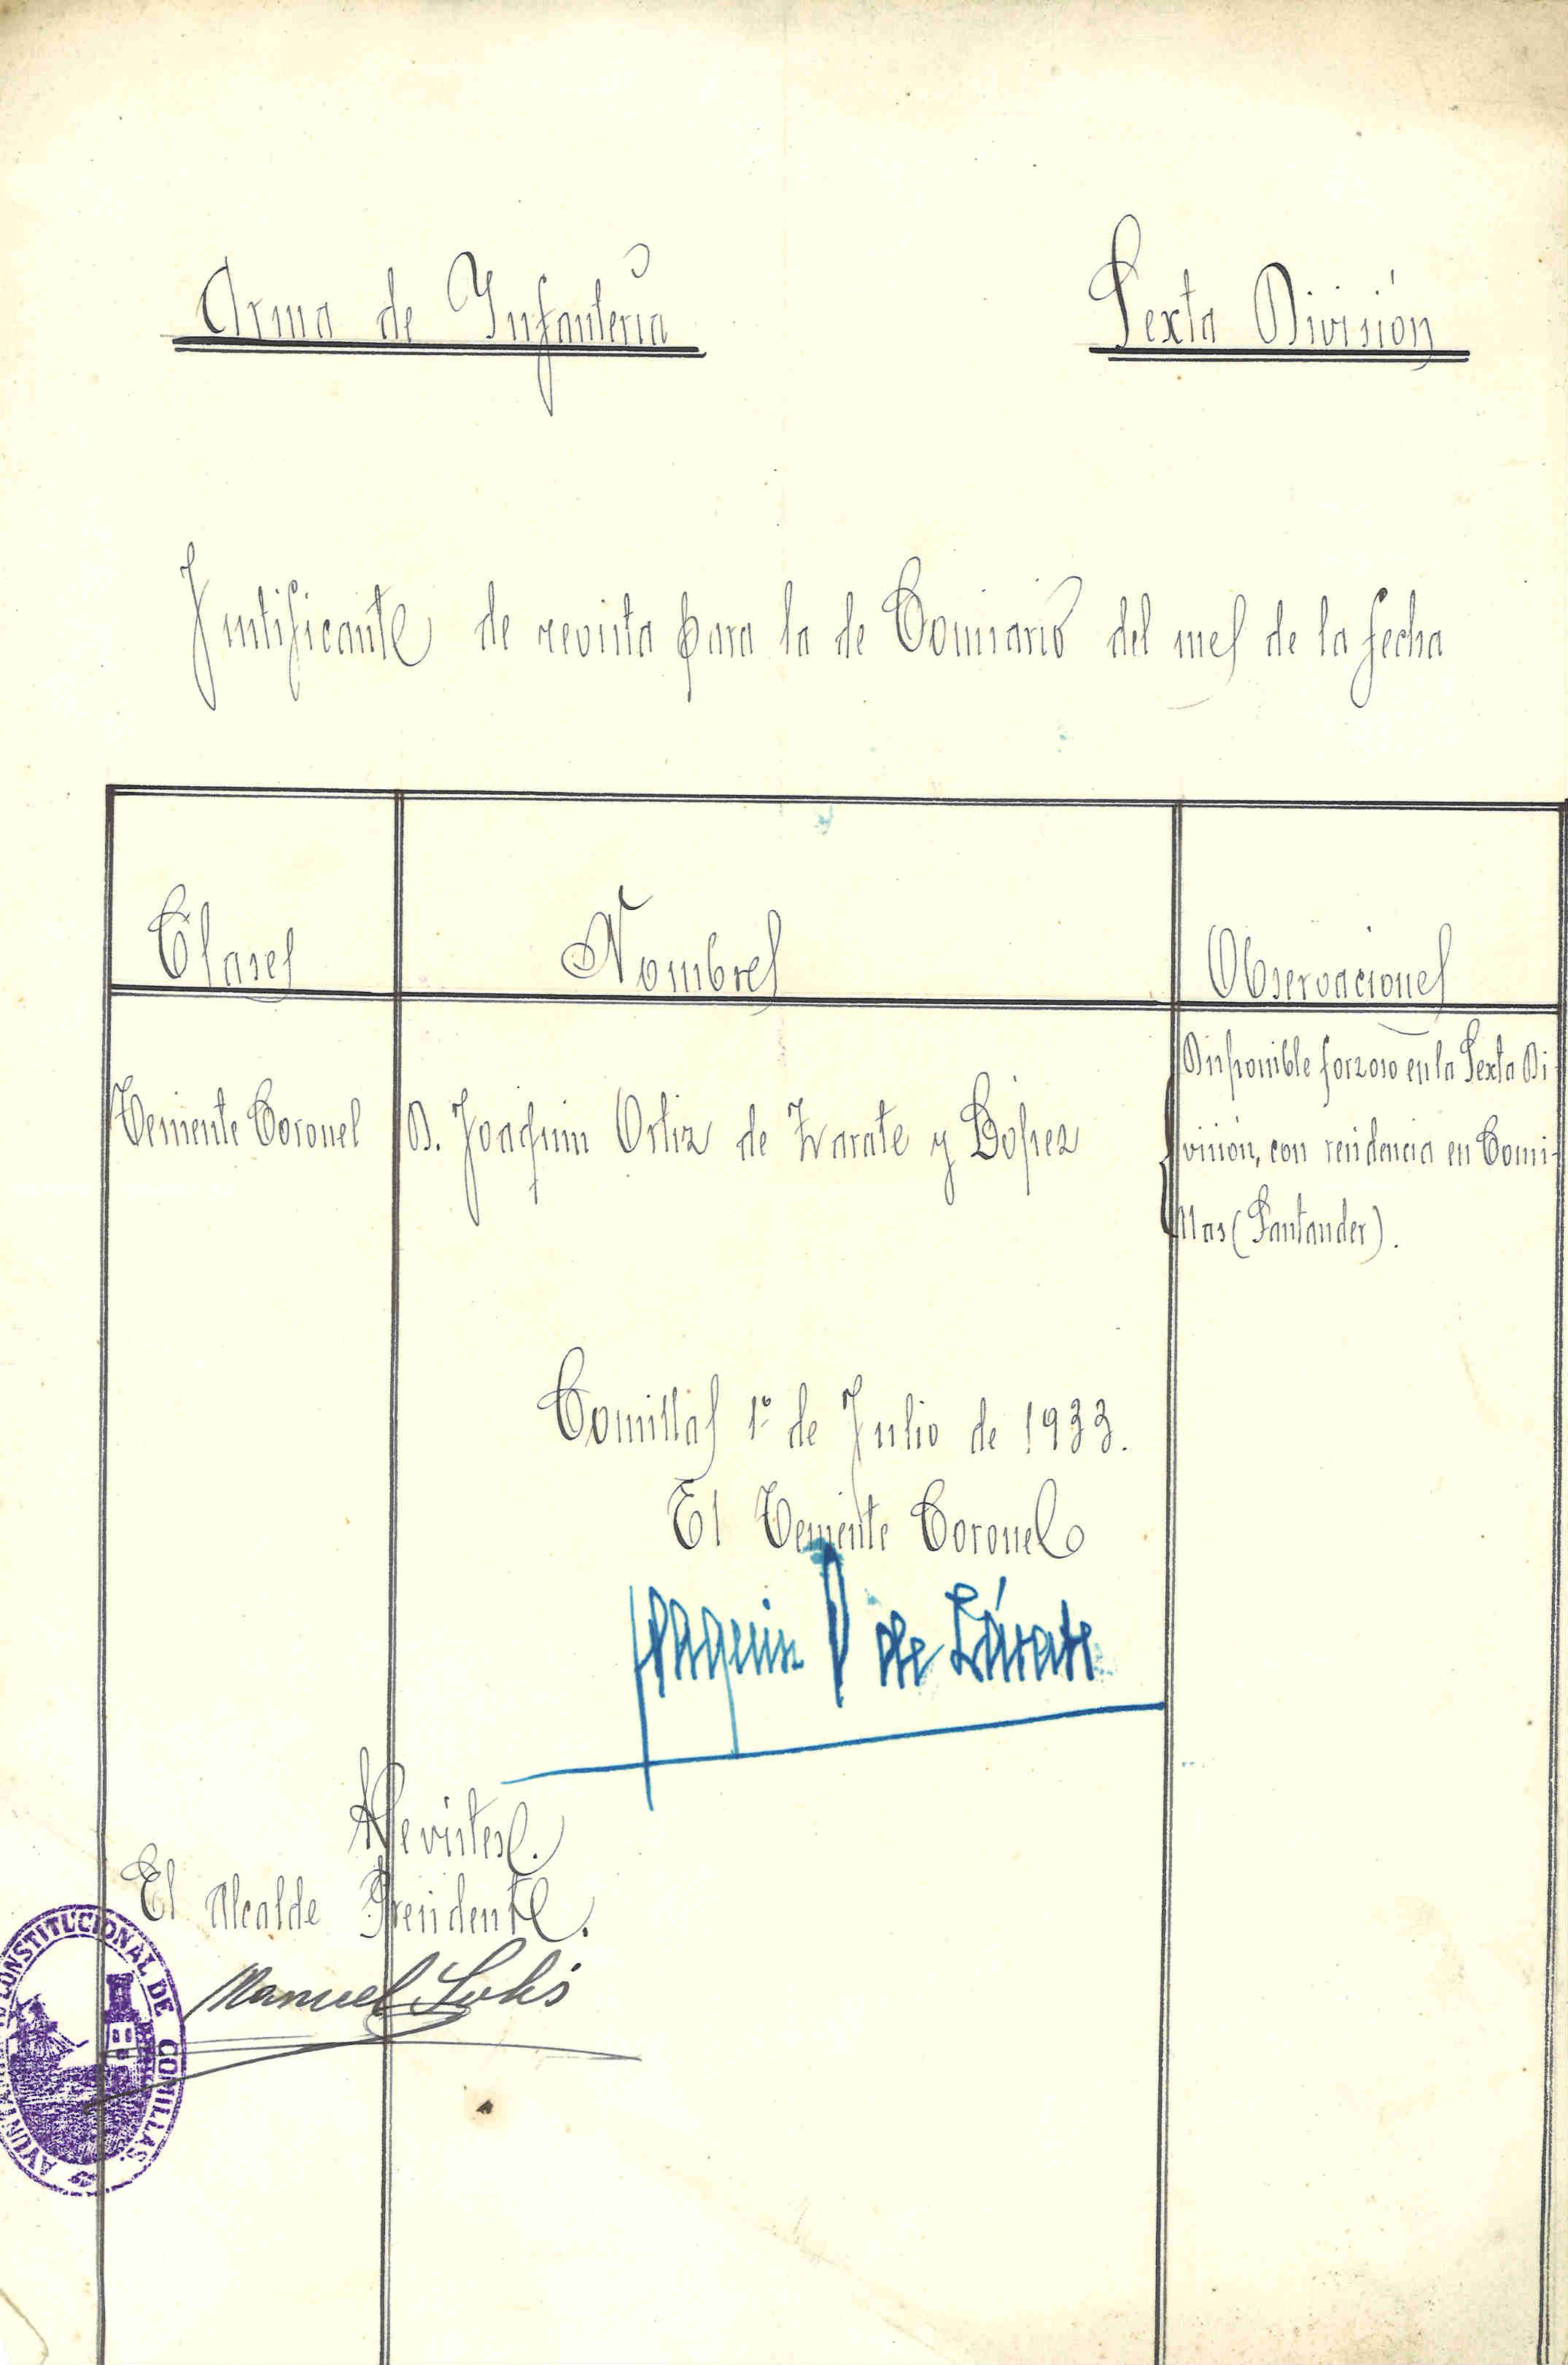 Arma de Infanteria
Sexta División
Justificante de revista para la de Comisario del mes de la fecha
Clases
Nombres
Observaciones
Teniente Coronel
D. Joaquin Ortiz de Zarate y López
Disponible forzoso en la Sexta Di-
visión, con residencia en Comi-
llas (Santander).
Comillas 1º de Julio de 1933.
El Teniente Coronel
Joaquin O de Zárate
Revistese.
El Alcalde Presidente.
Manuel
CONSTITUCIONAL DE COMILLAS.